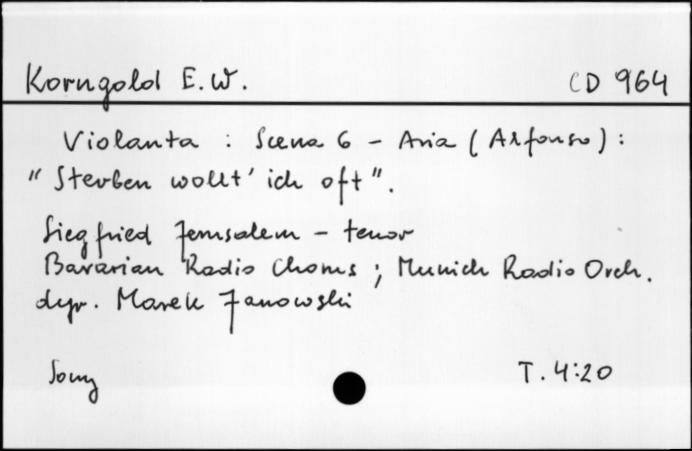 Korngold E.W. CD 964
Violanta : Scena 6 – Aria (Alfonso) :
"Sterben wollt' ich oft".
Siegfried Jerusalem – tenor
Bavarian Radio Chorus ; Munich Radio Orch.
dyr. Marek Janowski
Sony T. 4:20